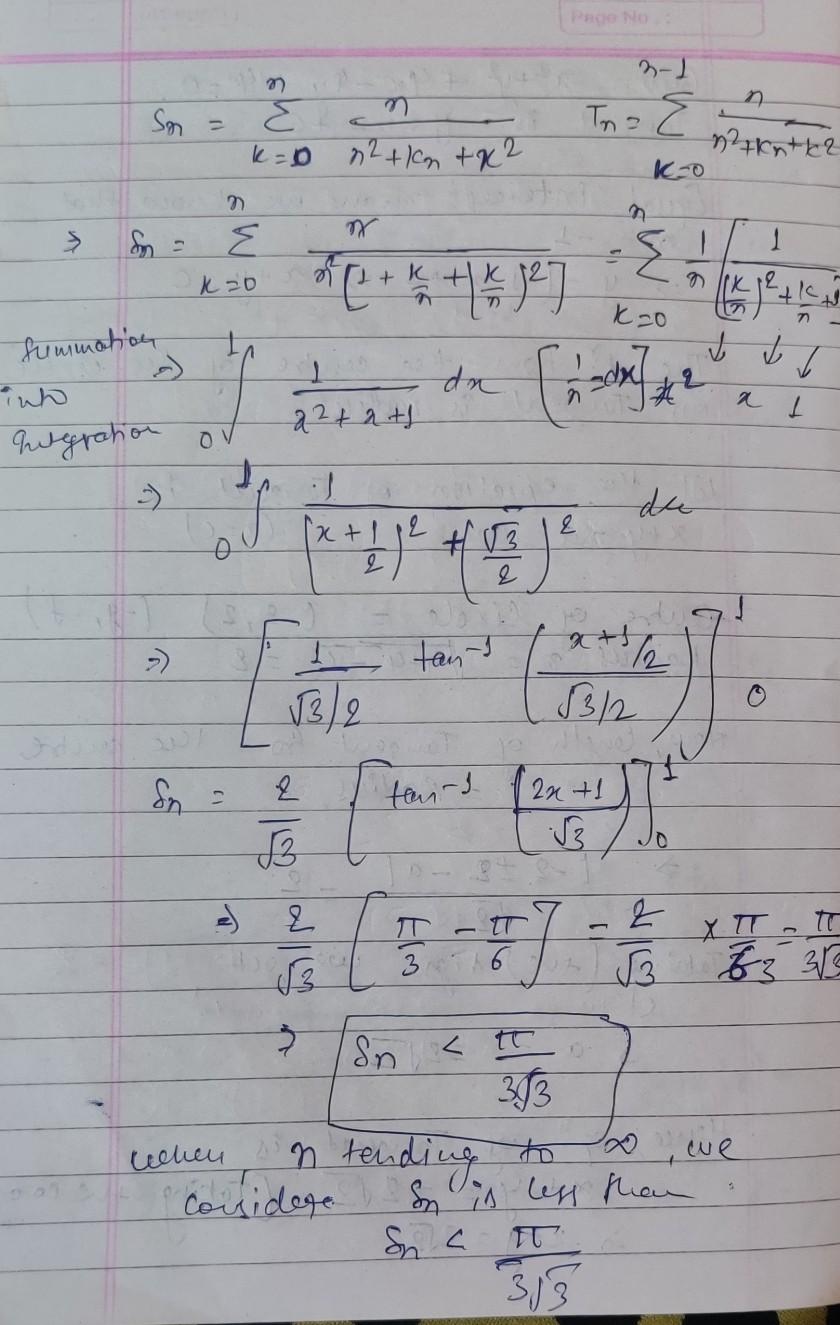 Page No.:
Sn = Σ_{k=0}^{n} n/(n²+kn+x²) Tn = Σ_{k=0}^{n-1} n/(n²+kn+k²)
⇒ Sn = Σ_{k=0}^{n} n/(n²[1+k/n+(k/n)²]) = Σ_{k=0}^{n} 1/n [1/((k/n)²+k/n+1
Summation into Integration ⇒ ∫₀¹ 1/(x²+x+1) dx [1/n=dx] x² x 1
⇒ ∫₀¹ 1/((x+1/2)²+(√3/2)²) dx
⇒ [1/(√3/2) tan⁻¹((x+1/2)/(√3/2))]₀¹
Sn = 2/√3 [tan⁻¹((2x+1)/√3)]₀¹
⇒ 2/√3 [π/3 - π/6] = 2/√3 × π/6 3 = π/3√3
⇒ Sn < π/3√3
when, n tending to ∞, we
considere Sn is less than
Sn < π/3√3